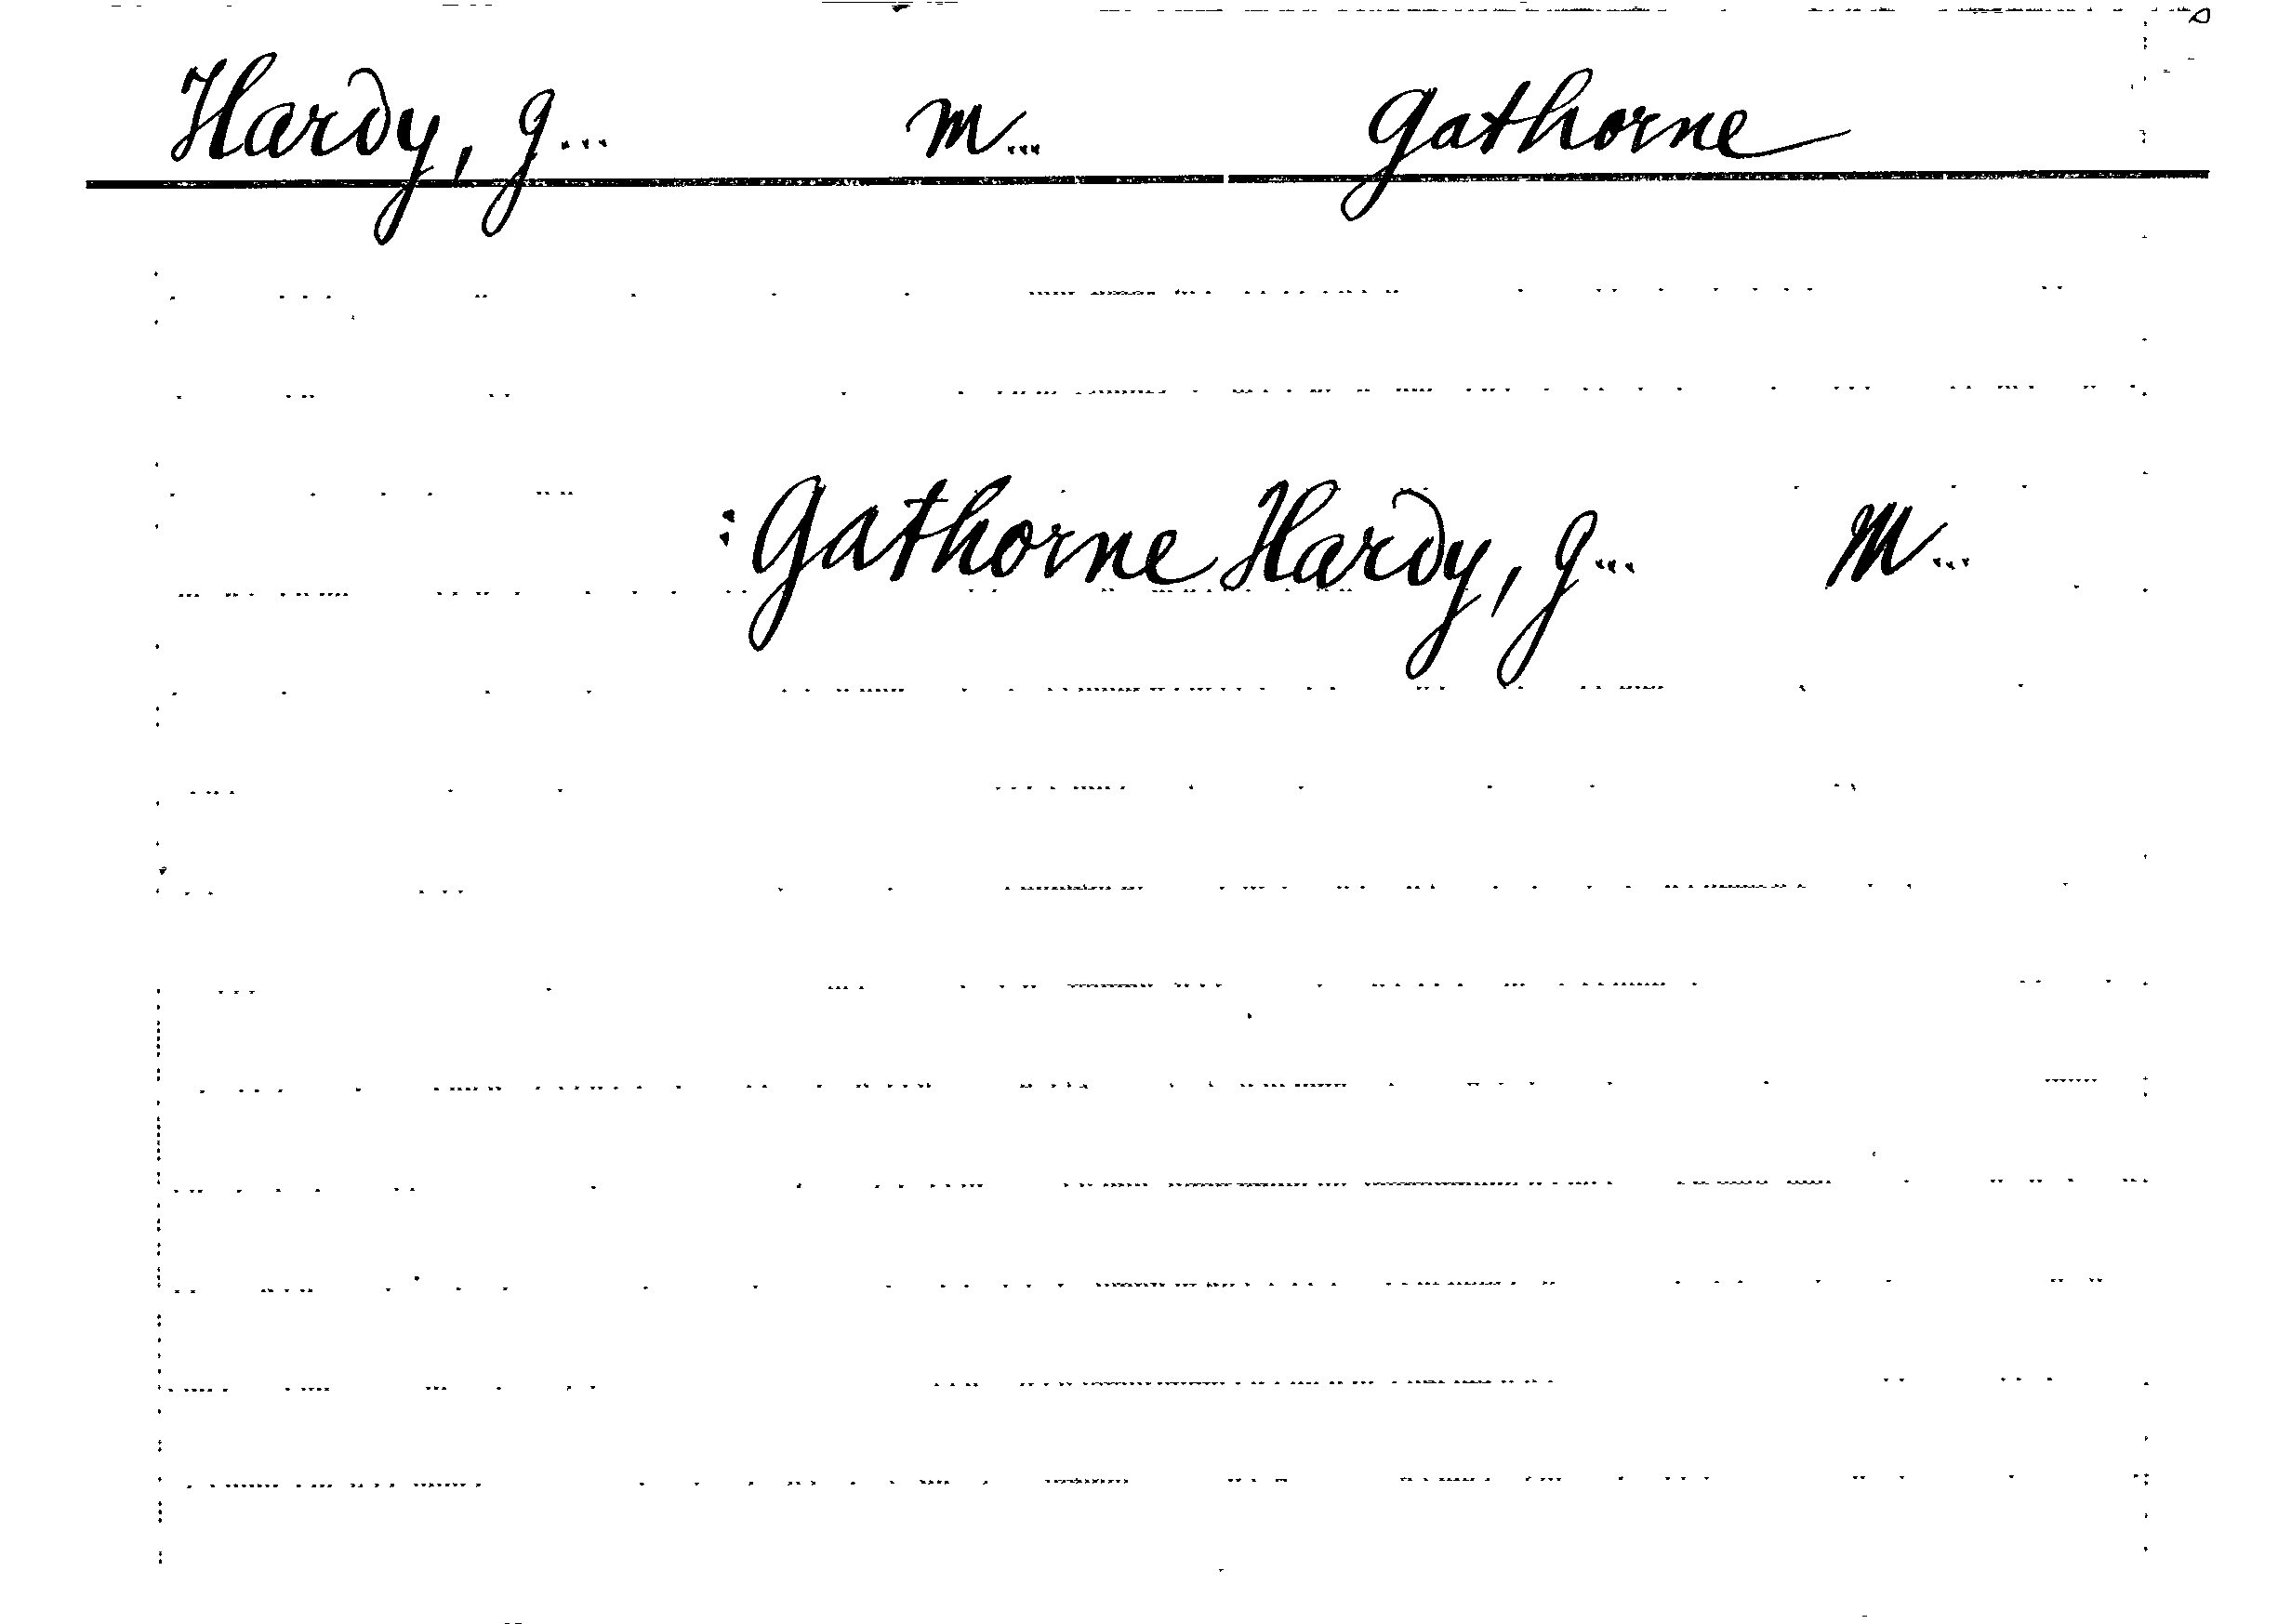 Hardy, G... M... Gathorne
: Gathorne Hardy, G... M...